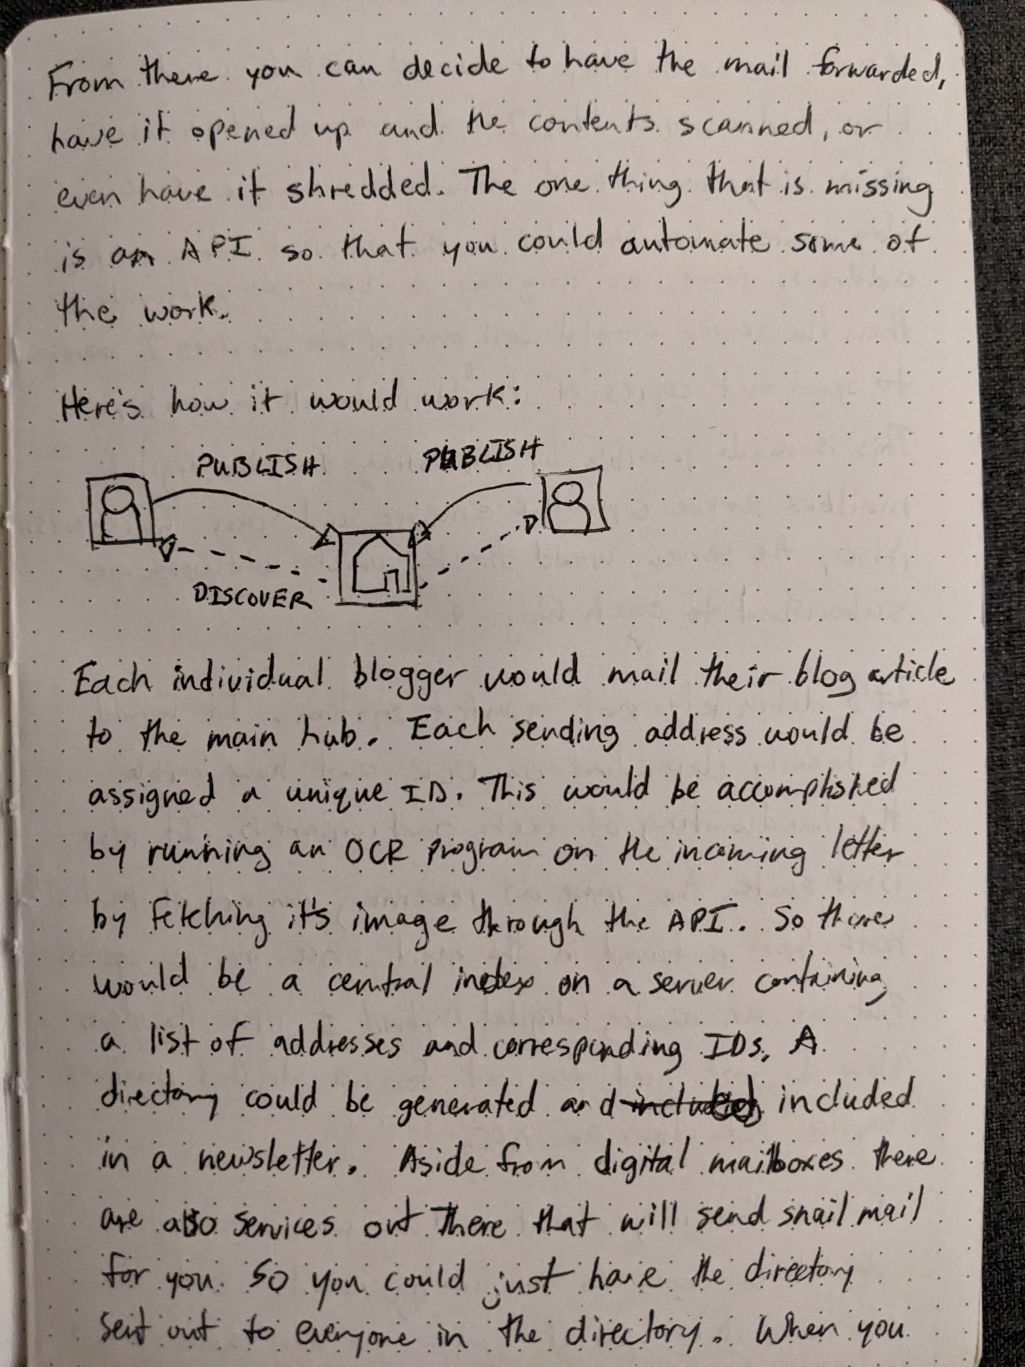 From there you can decide to have the mail forwarded,
have it opened up and the contents scanned, or
even have it shredded. The one thing that is missing
is an API so that you could automate some of
the work.
Here's how it would work:
PUBLISH
PUBLISH
DISCOVER
Each individual blogger would mail their blog article
to the main hub. Each sending address would be
assigned a unique ID. This would be accomplished
by running an OCR program on the incoming letter
by fetching it's image through the API. So there
would be a central index on a server containing
a list of addresses and corresponding IDs. A
directory could be generated and included included
in a newsletter. Aside from digital mailboxes there
are also services out there that will send snail mail
for you. So you could just have the directory
sent out to everyone in the directory. When you